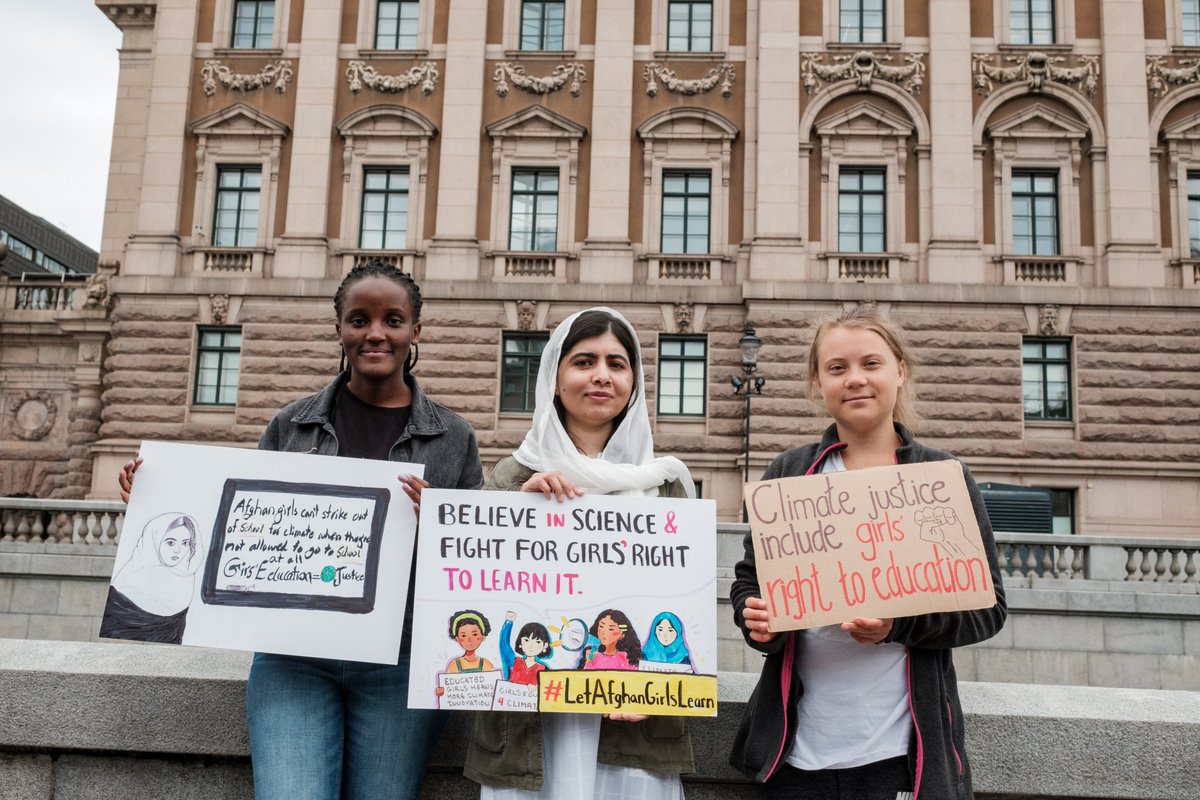 Afghan girls can't strike out
of school for climate when they're
not allowed to go to School
at all
Girls' Education = Justice
BELIEVE IN SCIENCE &
FIGHT FOR GIRLS' RIGHT
TO LEARN IT.
EDUCATED
GIRLS MEANS
MORE CLIMATE
INNOVATION
GIRLS EDU
4 CLIMAT
CLIMATE
#LetAfghanGirlsLearn
Climate justice
include girls'
right to education